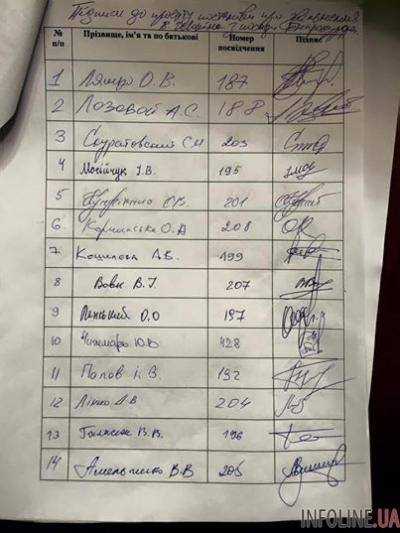 Підписи до проекту постанови про звільнення
№ п/п Прізвище, ім'я та по батькові Номер посвідчення Підпис
1 Ляшко О.В. 187
2 Лозовой А.С 188
3 Скуратовский С.И 203
4 Мосійчук І.В. 195
5 Купрієнко О.В. 201
6 Корчинська О.А 208
7 Кошелєва А.В. 199
8 Вовк В.І. 207
9 Ленський О.О 197
10 Чижмарь Ю.Ю. 428
11 Попов І.В. 192
12 Лінько Д.В 204
13 Галасюк В.В. 196
14 Амельченко В.В 205
INFOLINE.UA